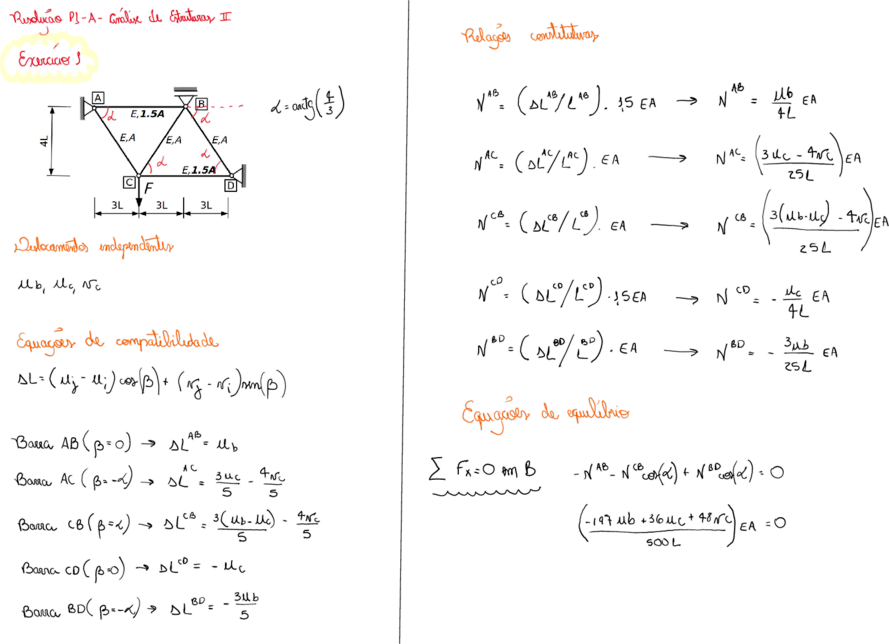 Resolução P1-A- Análise de Estruturas II
Exercício 1
A
B
E,1.5A
α
α
α = arctg(4/3)
4L
E,A
E,A
E,A
α
α
E,1.5A
C
D
F
3L
3L
3L
Deslocamentos independentes
μb, μc, vc
Equações de compatibilidade
ΔL = (μj - μi) cos(β) + (vj - vi) sin(β)
Barra AB (β=0) → ΔL^AB = μb
Barra AC (β=-α) → ΔL^AC = 3μc/5 - 4vc/5
Barra CB (β=α) → ΔL^CB = 3(μb-μc)/5 - 4vc/5
Barra CD (β=0) → ΔL^CD = -μc
Barra BD (β=-α) → ΔL^BD = -3μb/5
Relações constitutivas
N^AB = (ΔL^AB/L^AB) . 1,5 EA → N^AB = μb/4L EA
N^AC = (ΔL^AC/L^AC) . EA → N^AC = (3μc - 4vc / 25L) EA
N^CB = (ΔL^CB/L^CB) . EA → N^CB = (3(μb-μc) - 4vc / 25L) EA
N^CD = (ΔL^CD/L^CD) . 1,5 EA → N^CD = - μc/4L EA
N^BD = (ΔL^BD/L^BD) . EA → N^BD = - 3μb/25L EA
Equações de equilíbrio
∑ Fx=0 em B -N^AB - N^CB cos(α) + N^BD cos(α) = 0
(-197 μb + 36μc + 48vc / 500L) EA = 0